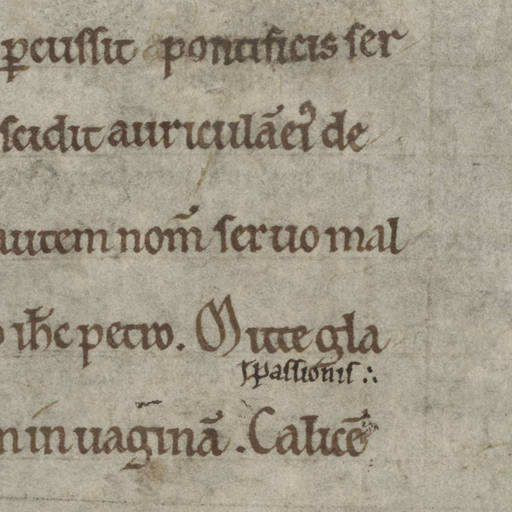 ꝑcussit pontificis ser
scidit auriculā eiꝰ de
autem nom̄ seruo mal
ih̄c petro. Mitte gla
s. passionis :.
in uaginā. Calicē